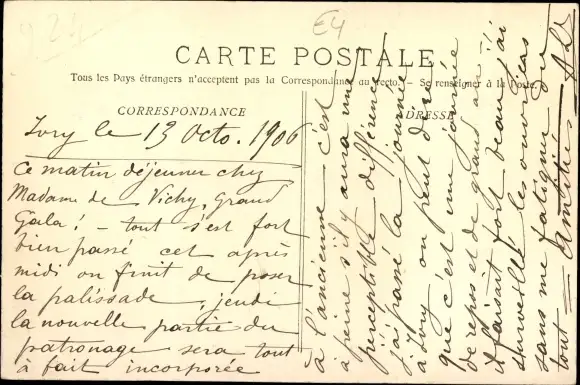 E4
CARTE POSTALE
Tous les Pays étrangers n'acceptent pas la Correspondance au recto. – Se renseigner à la Poste.
CORRESPONDANCE
ADRESSE
Ivry le 13 Octo. 1906
Ce matin déjeuner chez
Madame de Vichy, Grand
Gala! – tout s'est fort
bien passé cet après
midi on finit de poser
la palissade, jeudi
la nouvelle partie du
patronage sera tout
à fait incorporée
à l'ancienne c'est
à peine s'il y aura une
perceptible différence
j'ai passé la journée
à Ivry on peut dire
que c'est une journée
de repos et de grand air
il faisait fort beau j'ai
surveillé les ouvriers
sans me fatiguer du
tout – Amitiés